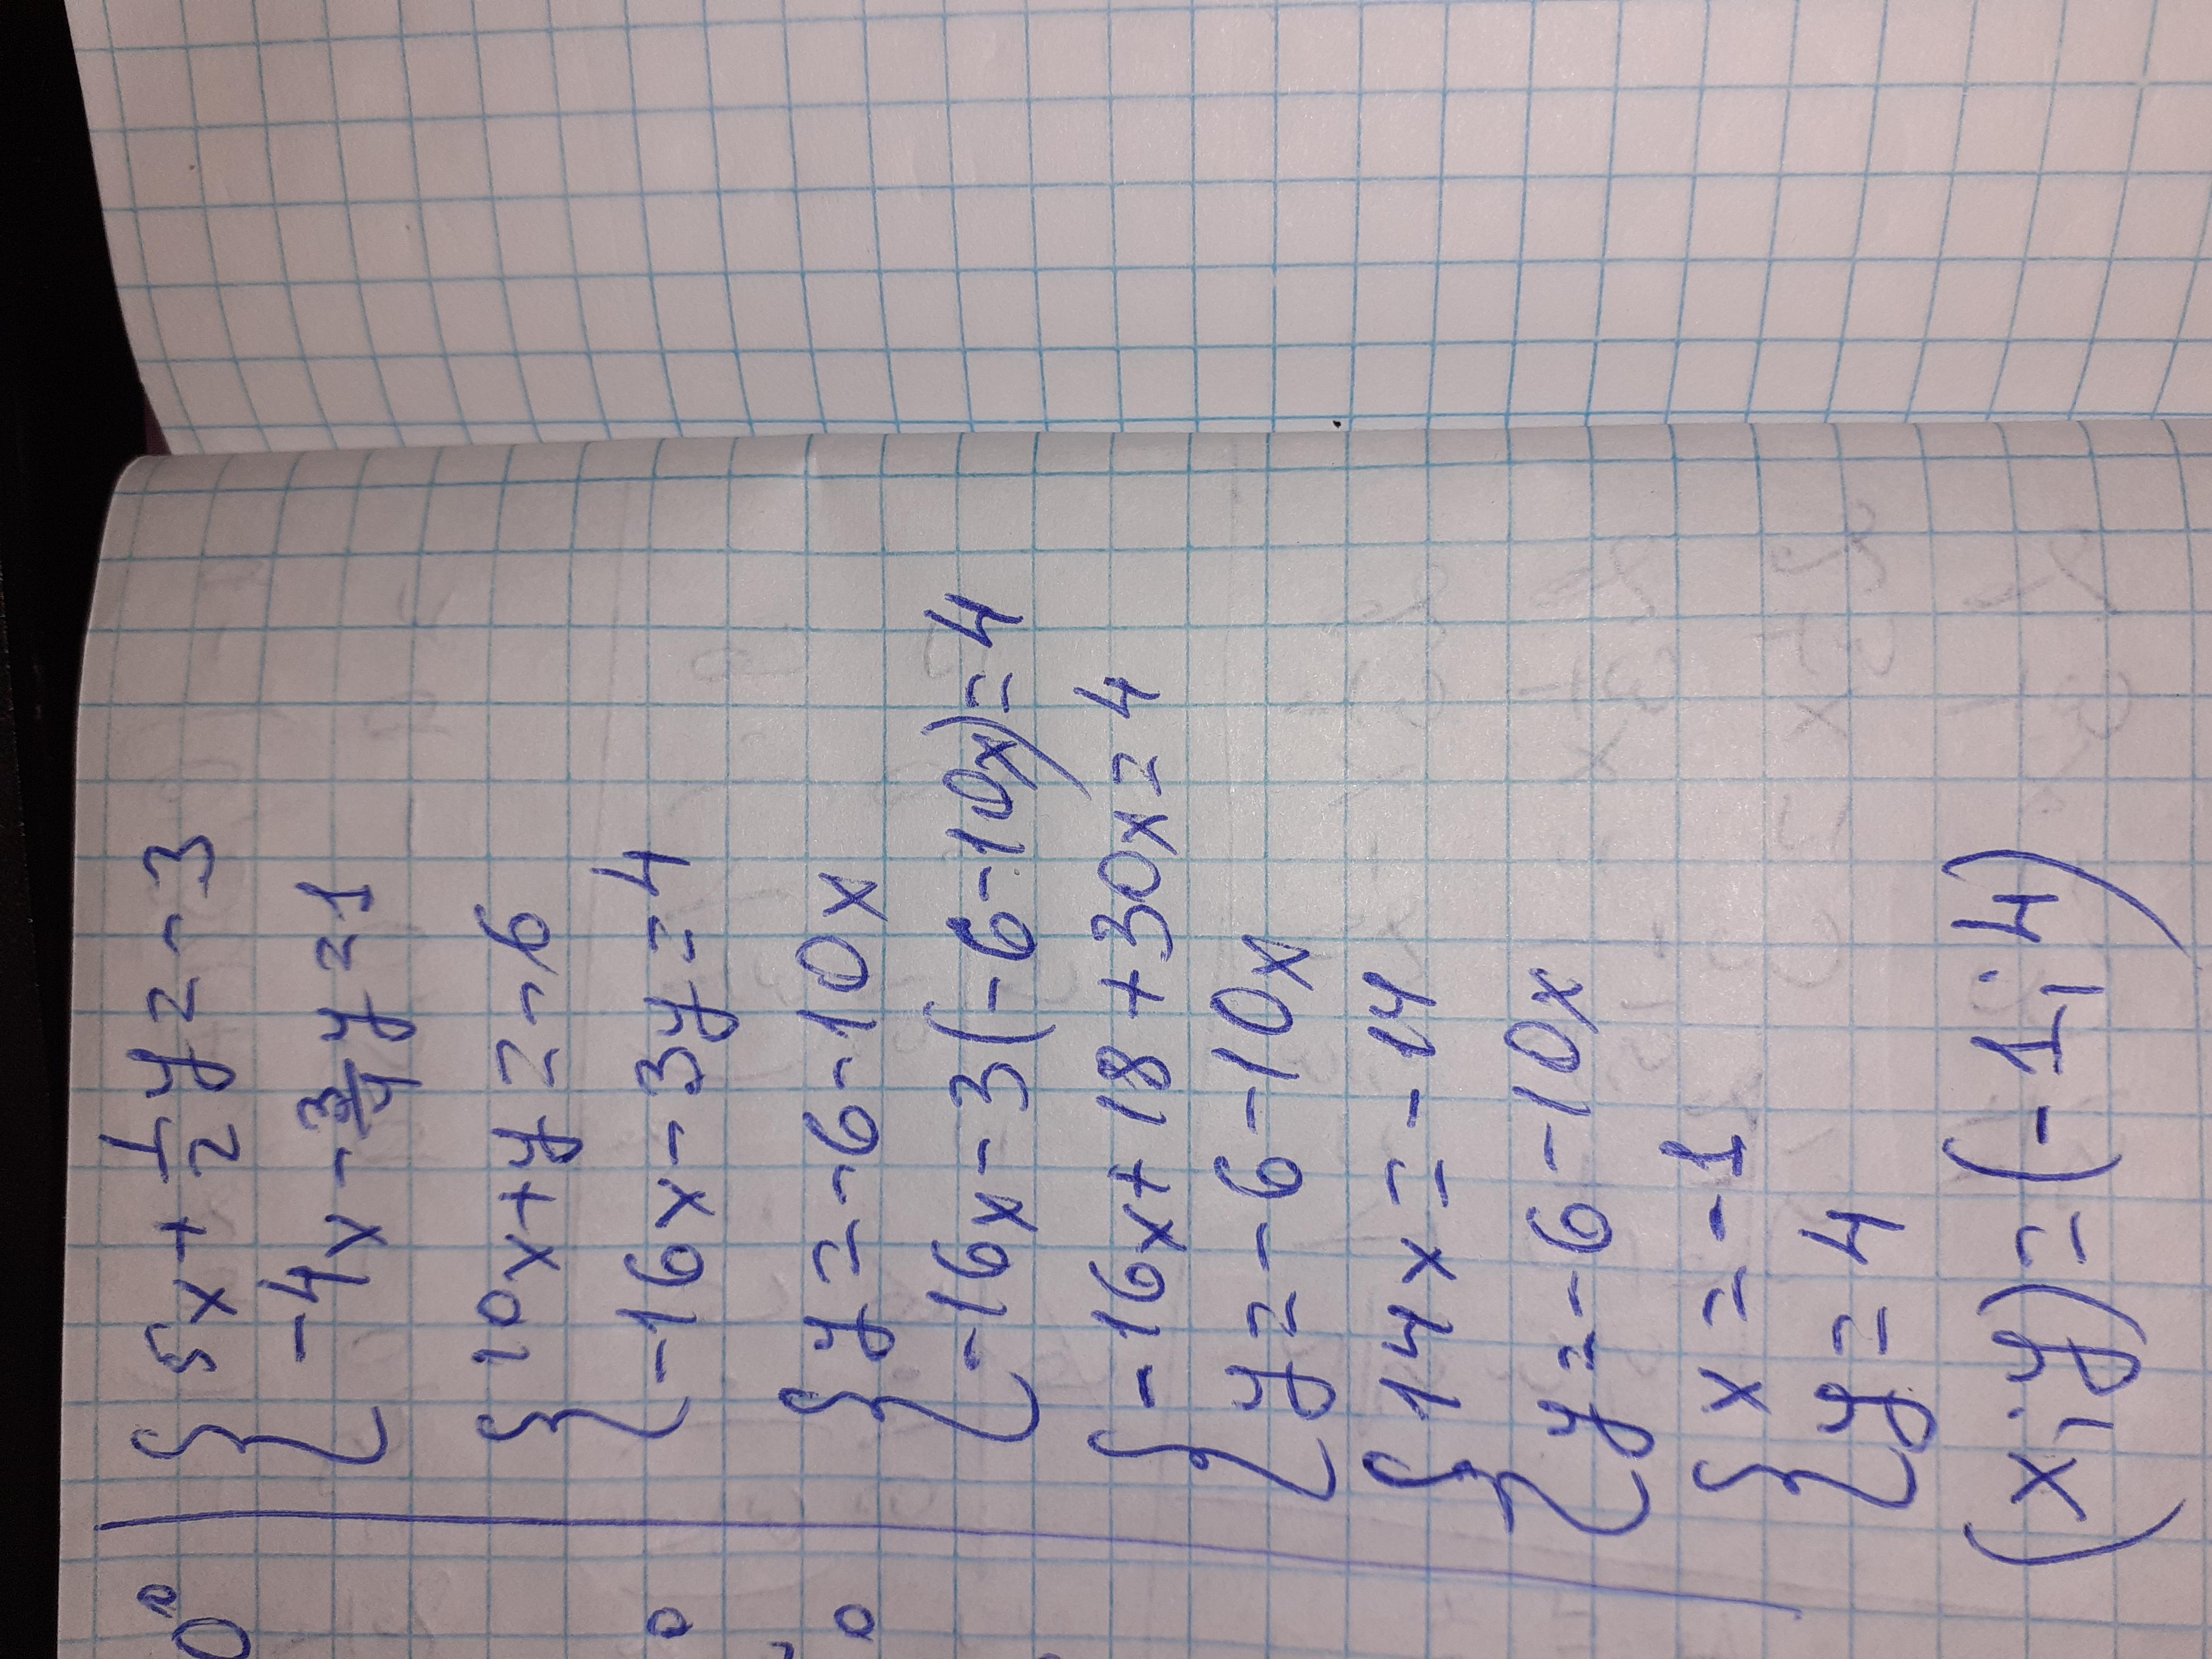 { 5x + 1/2 y = -3
-4x - 3/4 y = 1
{ 10x + y = -6
-16x - 3y = 4
{ y = -6 - 10x
-16x - 3(-6 - 10x) = 4
{ -16x + 18 + 30x = 4
y = -6 - 10x
{ 14x = -14
y = -6 - 10x
{ x = -1
y = 4
(x; y) = (-1; 4)